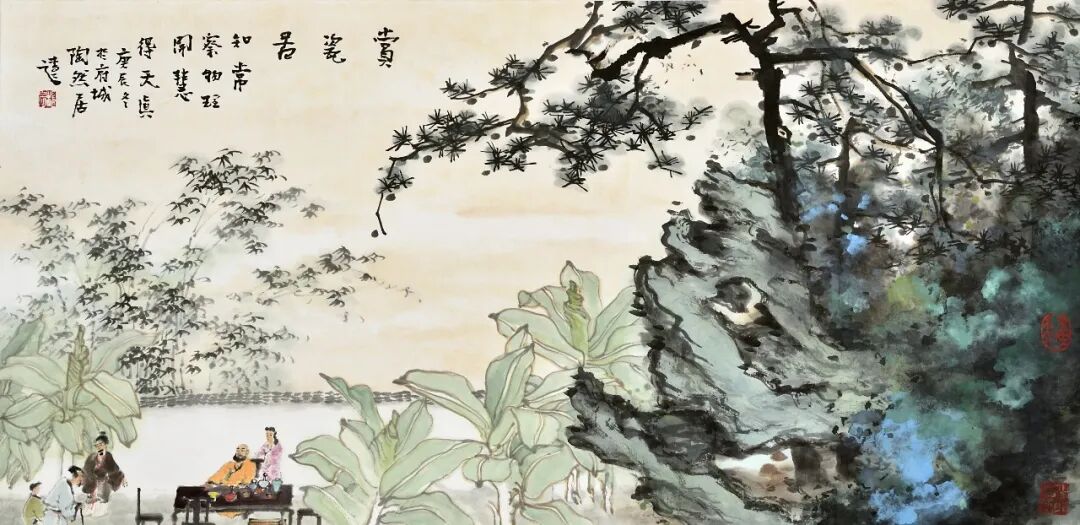 賞
瓷
知常
察物理
開慧
得天真
庚辰冬
於府城
陶然居